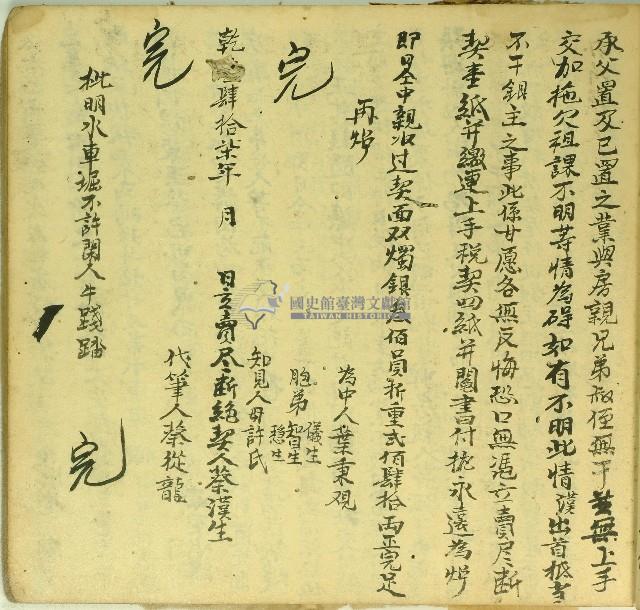 承父置及已置之業與房親兄弟叔侄無干並無上手
交加拖欠租課不明等情為碍如有不明此情漢出首抵当
不干銀主之事此係甘愿各無反悔恐口無憑立賣尽断
契壹紙并繳連上手税契四紙并鬮書付执永遠為炤
即日仝中親收过契面双燭銀叁佰員折重弍佰肆拾両正完足
再炤
為中人葉秉观
胞弟儀生
智生
稳生
知見人母許氏
代筆人蔡從龍
完
乾肆拾柒年 月 日立賣尽断絶契人蔡漢生
完
批明水車堀不許閑人牛踐踏
完
國史館臺灣文獻館
TAIWAN HISTORICA